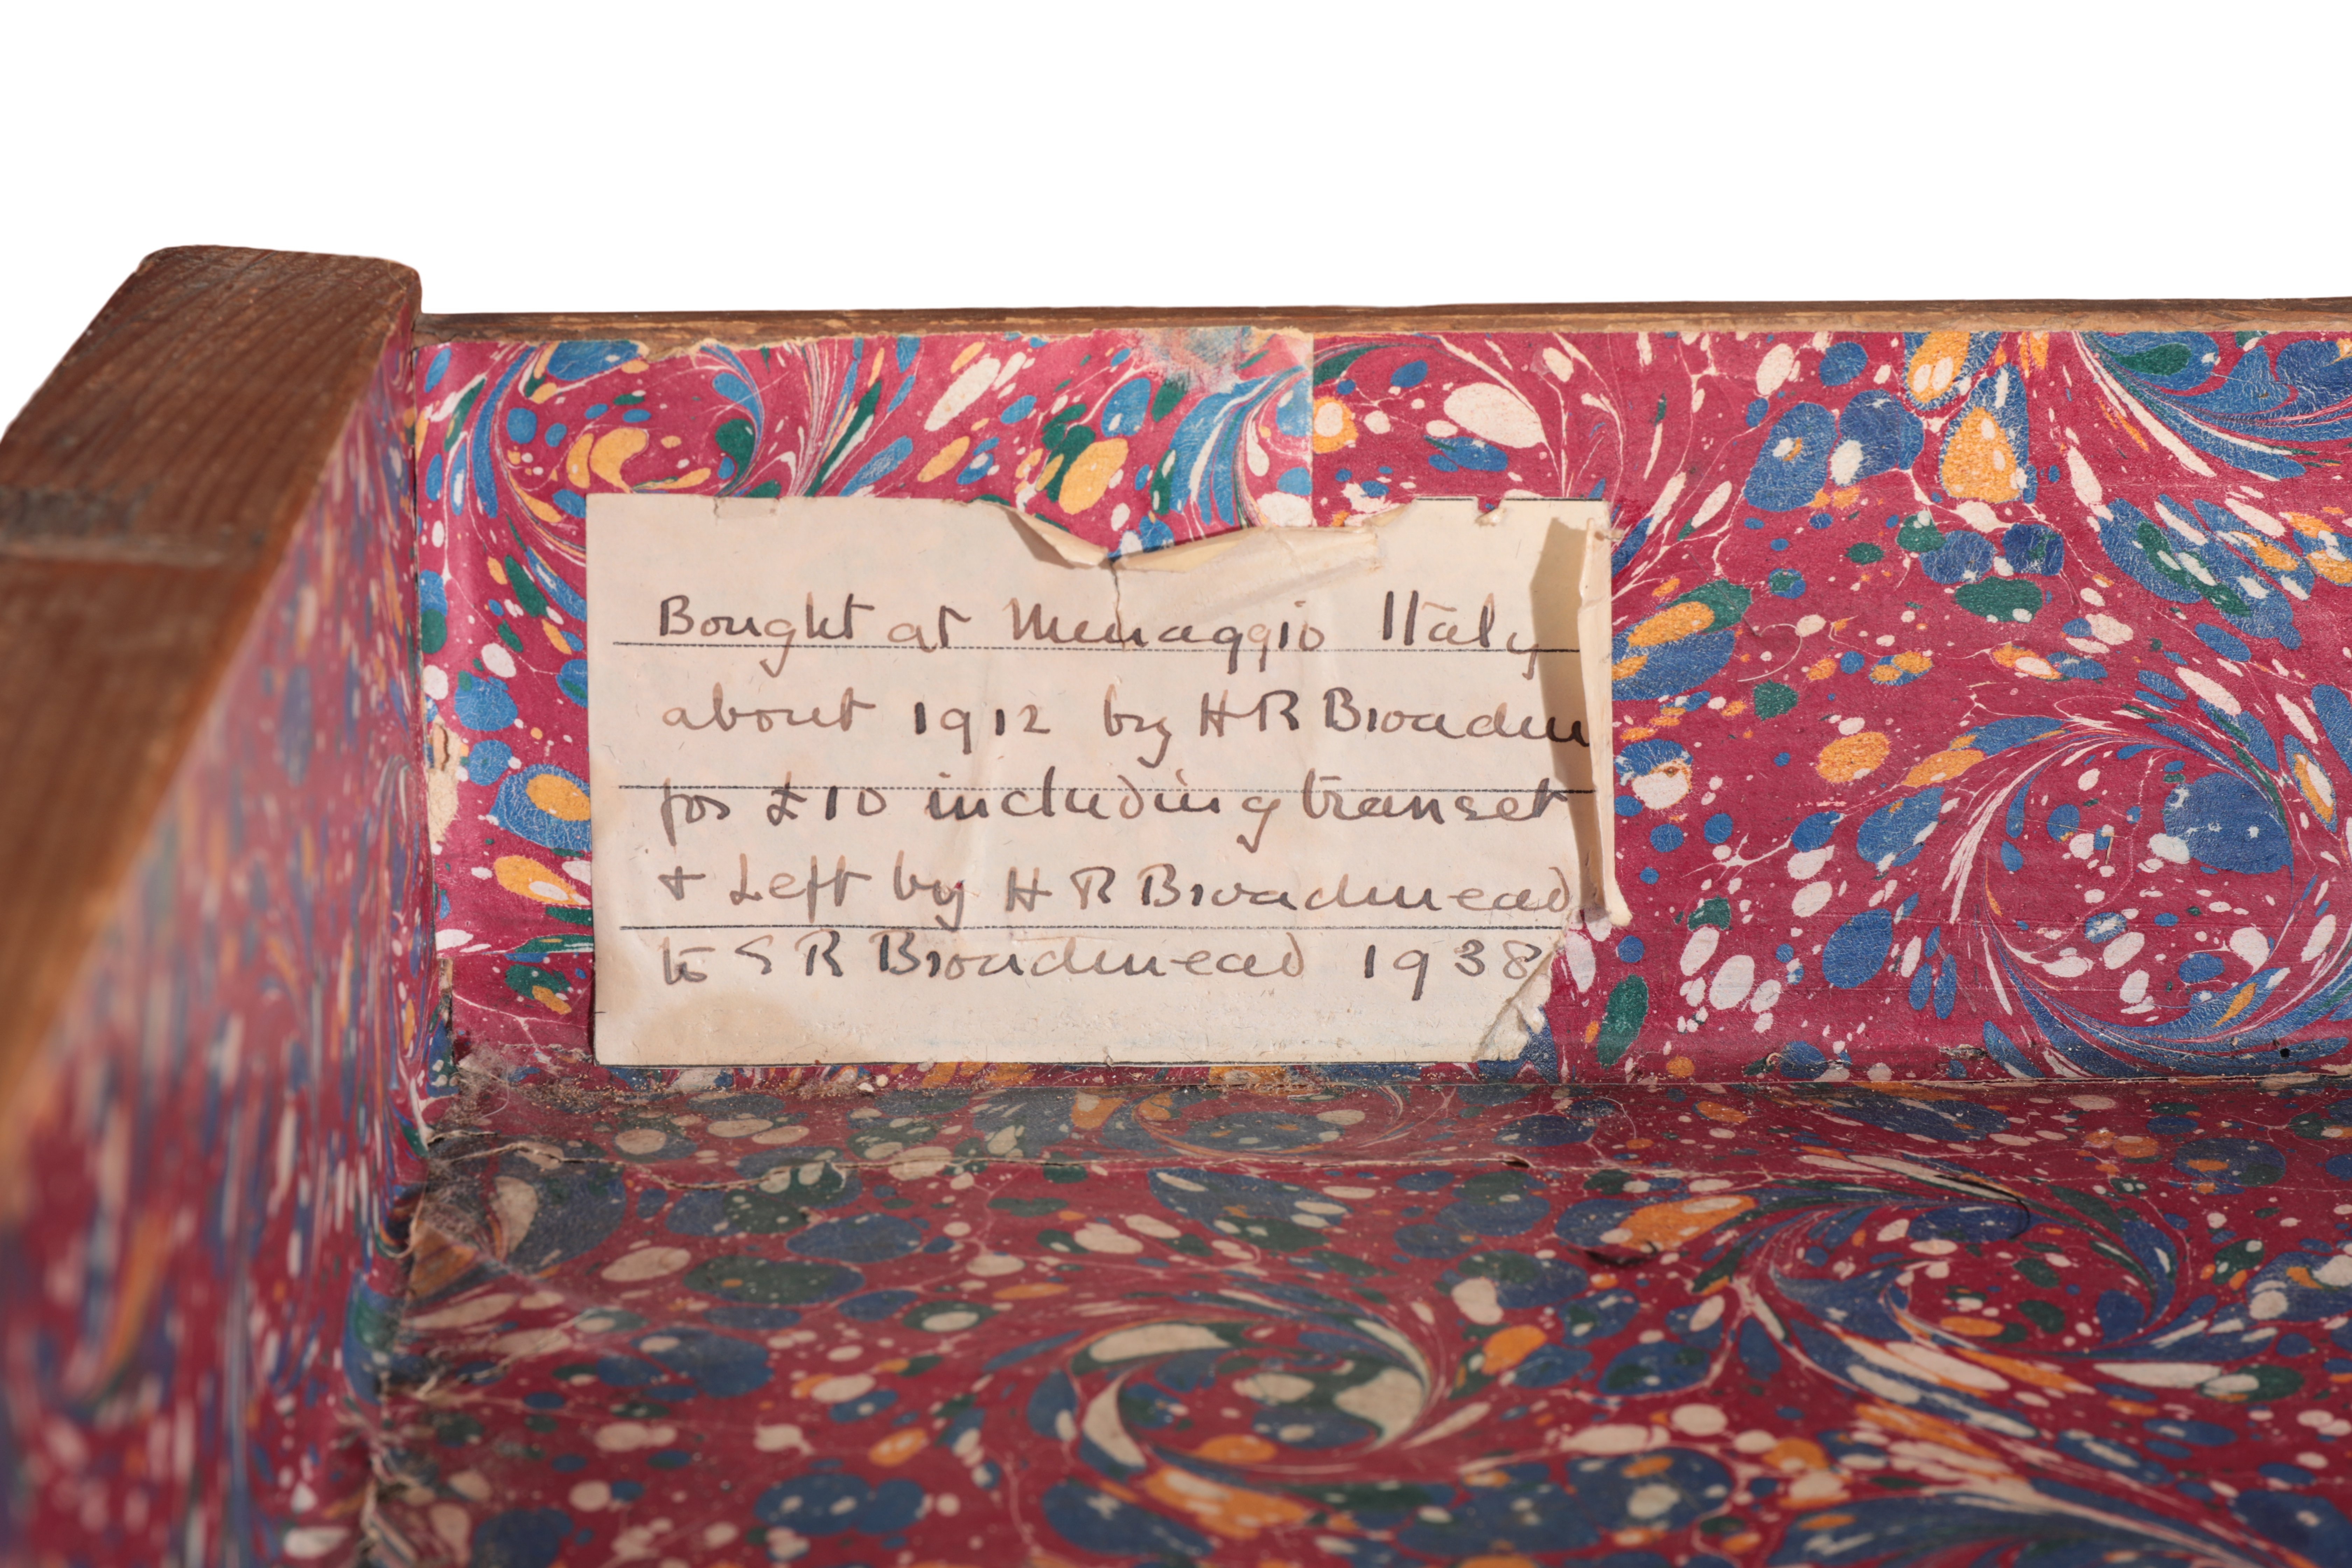 Bought at Menaggio Italy
about 1912 by H R Broadm
for £10 including transet
+ Left by H R Broadmead
to S R Broadmead 1938